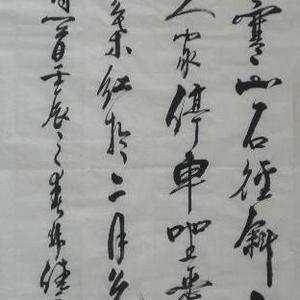 寒山石徑斜
人家停車坐愛
葉紅於二月
首壬辰之春